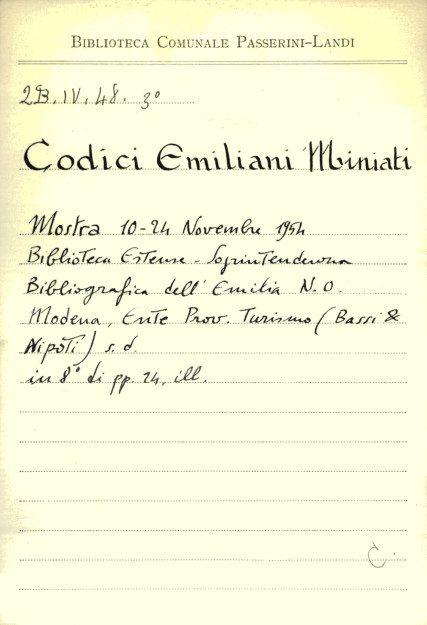 BIBLIOTECA COMUNALE PASSERINI-LANDI
2B.IV.48. 3°
Codici Emiliani Miniati
Mostra 10-24 Novembre 1954
Biblioteca Estense - Soprintendenza
Bibliografica dell'Emilia N.O.
Modena, Ente Prov. Turismo (Bassi &
Nipoti) s.d.
in 8° di pp. 24, ill.
C.